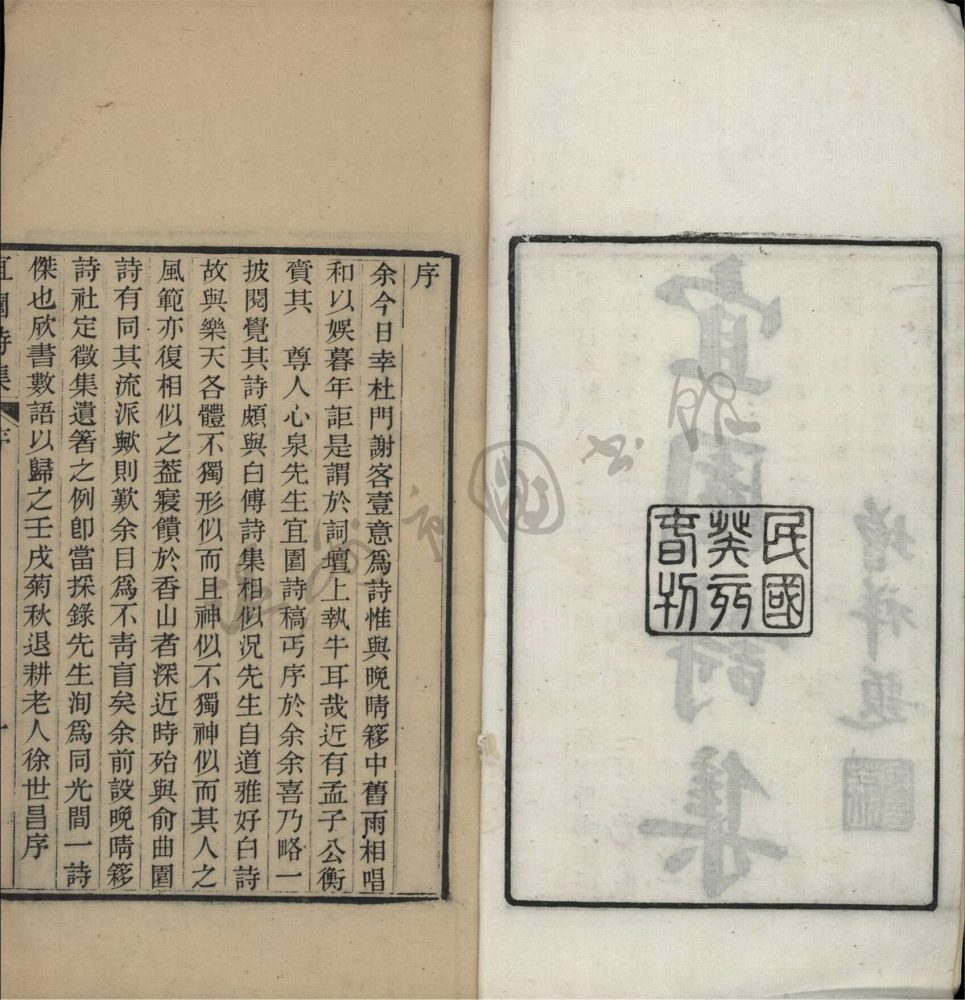 宜園詩集
增祥題
民國
癸亥
春刊
序
余今日幸杜門謝客壹意爲詩惟與晚晴簃中舊雨相唱
和以娛暮年詎是謂於詞壇上執牛耳哉近有孟子公衡
賫其　尊人心泉先生宜園詩稿丐序於余余喜乃略一
披閱覺其詩頗與白傅詩集相似況先生自道雅好白詩
故與樂天各體不獨形似而且神似不獨神似而其人之
風範亦復相似之葢寢饋於香山者深近時殆與俞曲園
詩有同其流派歟則歎余目爲不靑盲矣余前設晚晴簃
詩社定徵集遺箸之例卽當採錄先生洵爲同光間一詩
傑也欣書數語以歸之壬戌菊秋退耕老人徐世昌序
宜園詩集　序　一